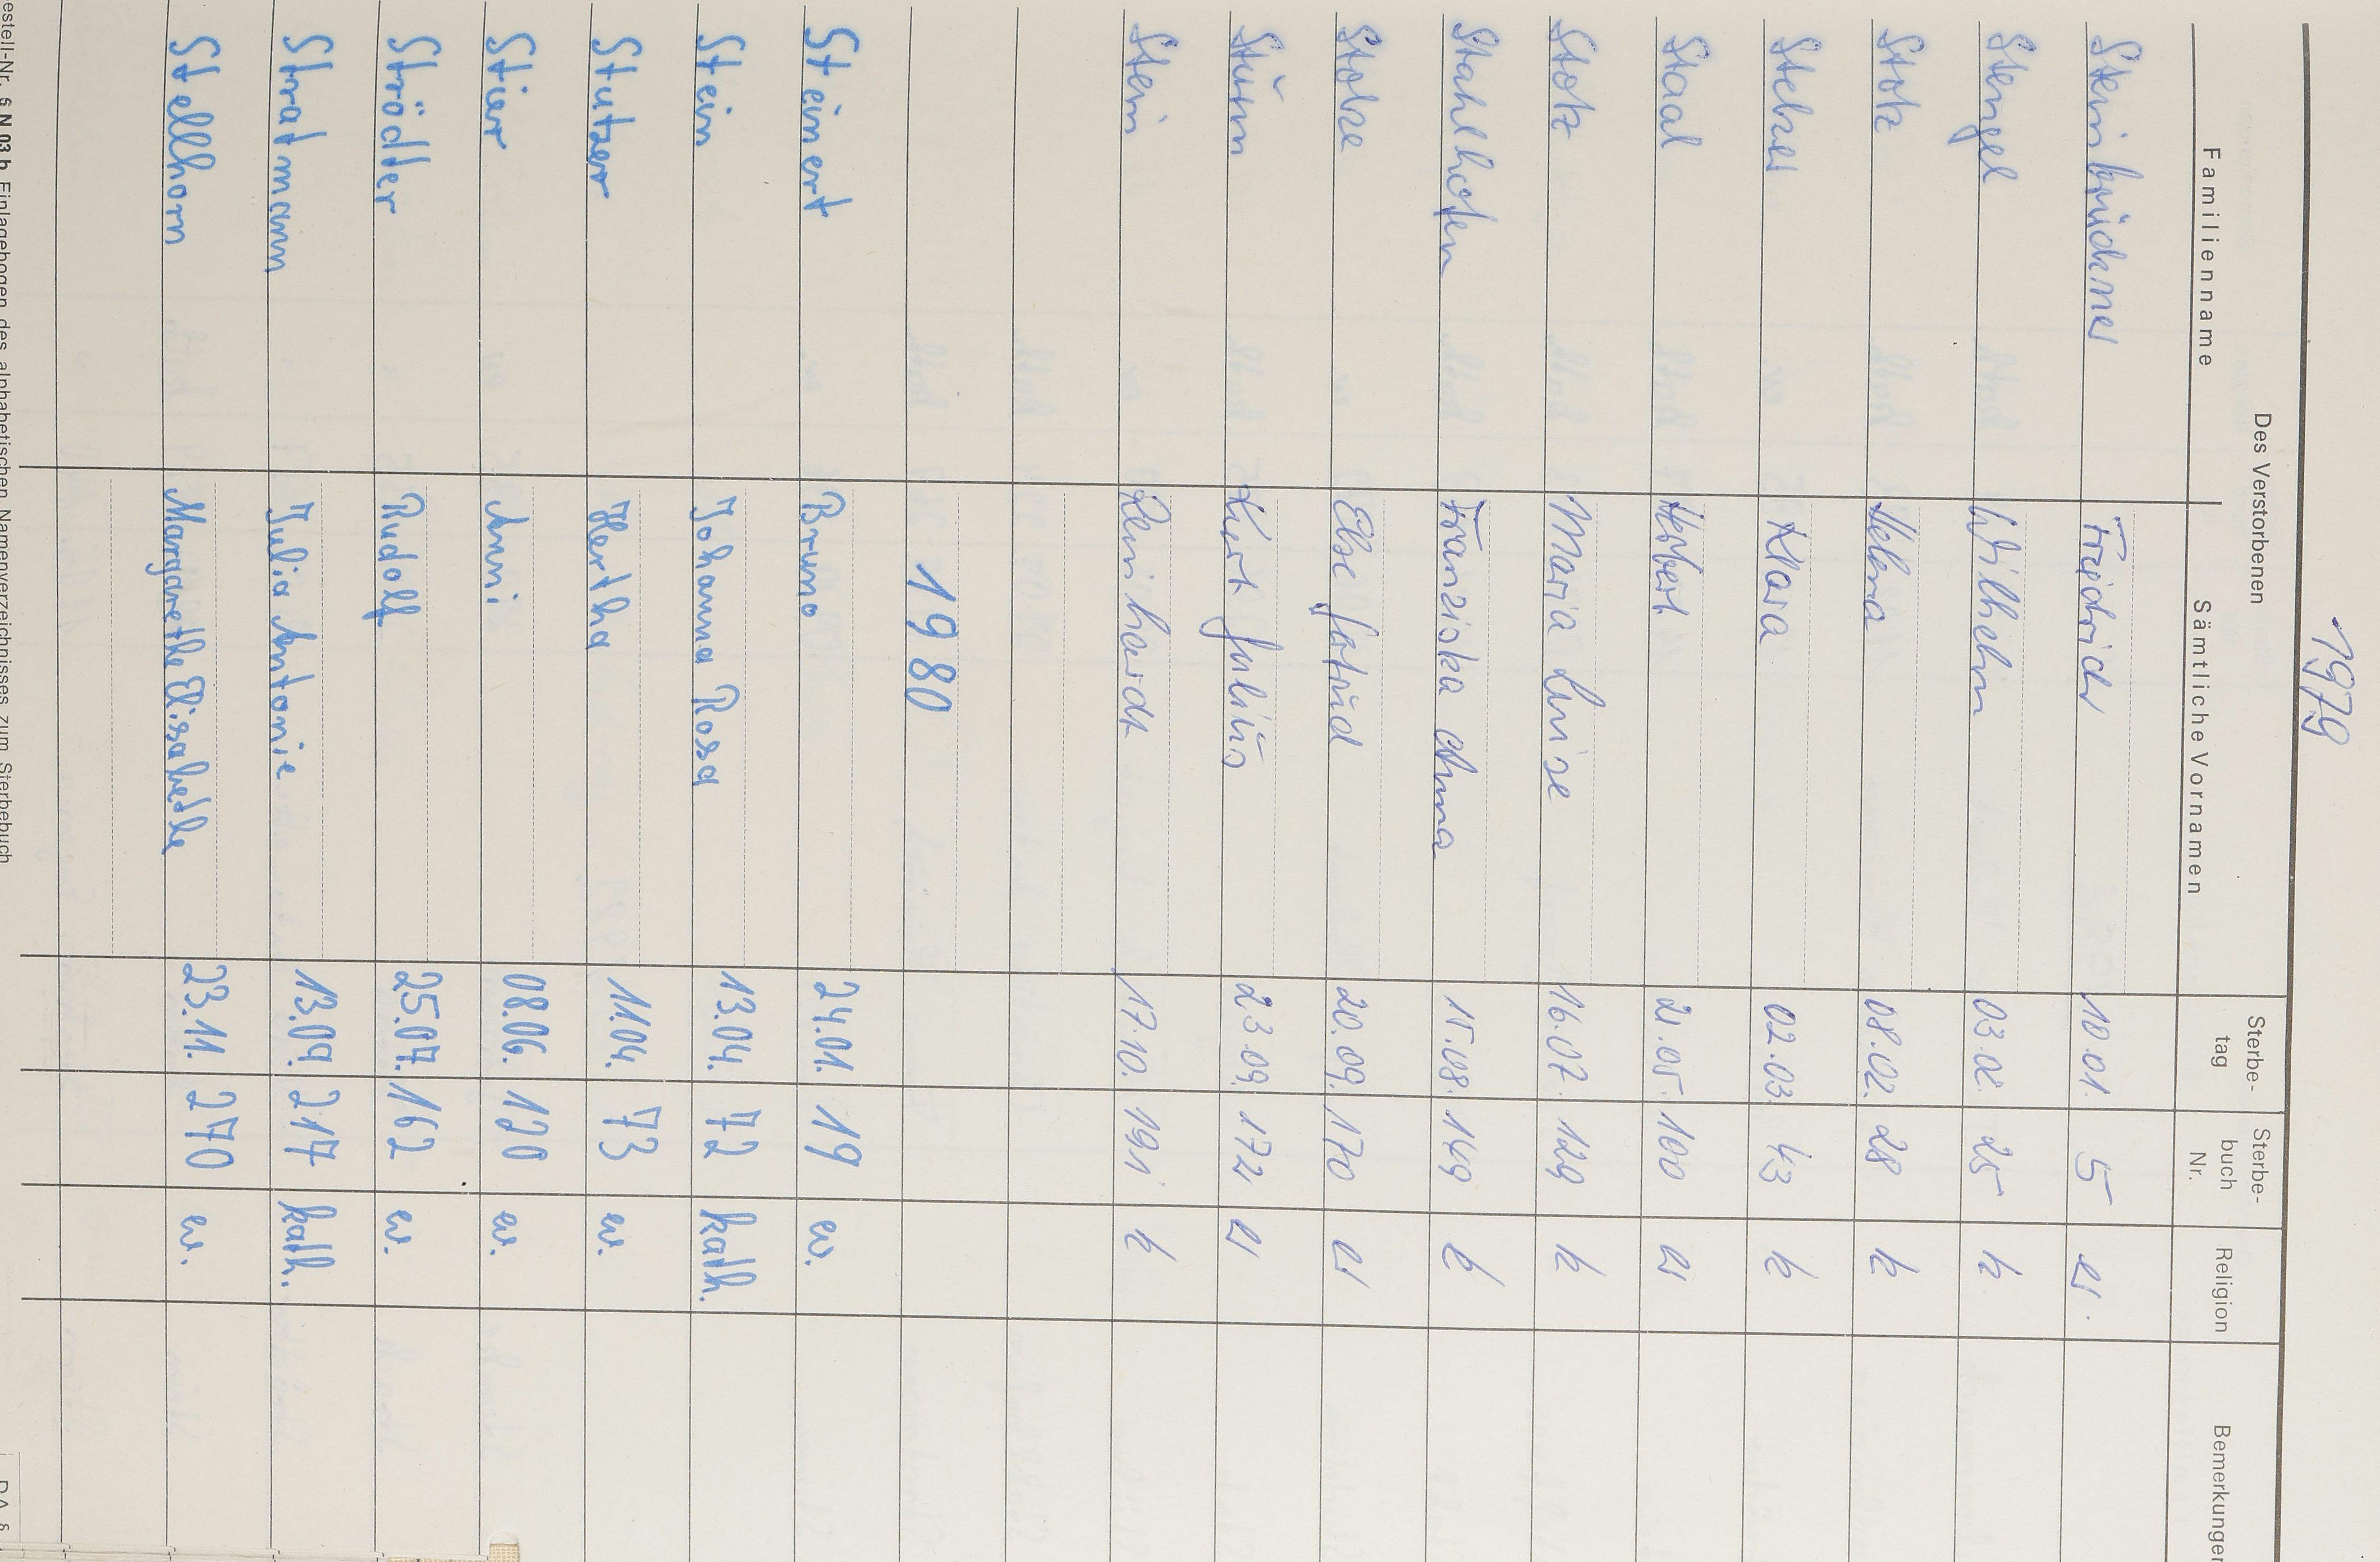 1979
Des Verstorbenen
Familienname Sämtliche Vornamen Sterbe- tag Sterbe- buch Nr. Religion Bemerkungen
Steinbrückner Friedrich 10.01. 5 ev.
Stengel Wilhelm 03.02. 25 k
Stotz Helena 08.02. 28 k
Stelzer Klara 02.03. 43 k
Staal Herbert 21.05. 100 ev
Stotz Maria Luise 16.07. 129 k
Stahlhofen Franziska Anna 15.08. 149 k
Stolze Else Gertrud 20.09. 170 ev
Sturm Kurt Julius 23.09. 172 ev
Stein Reinhardt 17.10. 191 k
1980
Steinert Bruno 24.01. 19 ev.
Stein Johanna Rosa 13.04. 72 kath.
Stutzer Hertha 11.04. 73 ev.
Stier Anni 08.06. 120 ev.
Strödter Rudolf 25.07. 162 ev.
Stratmann Julia Antonie 13.09. 217 kath.
Stellhorn Margarethe Elisabethe 23.11. 270 ev.
estell-Nr. 6 N 03 b Einlagebogen des alphabetischen Namenverzeichnisses zum Sterbebuch